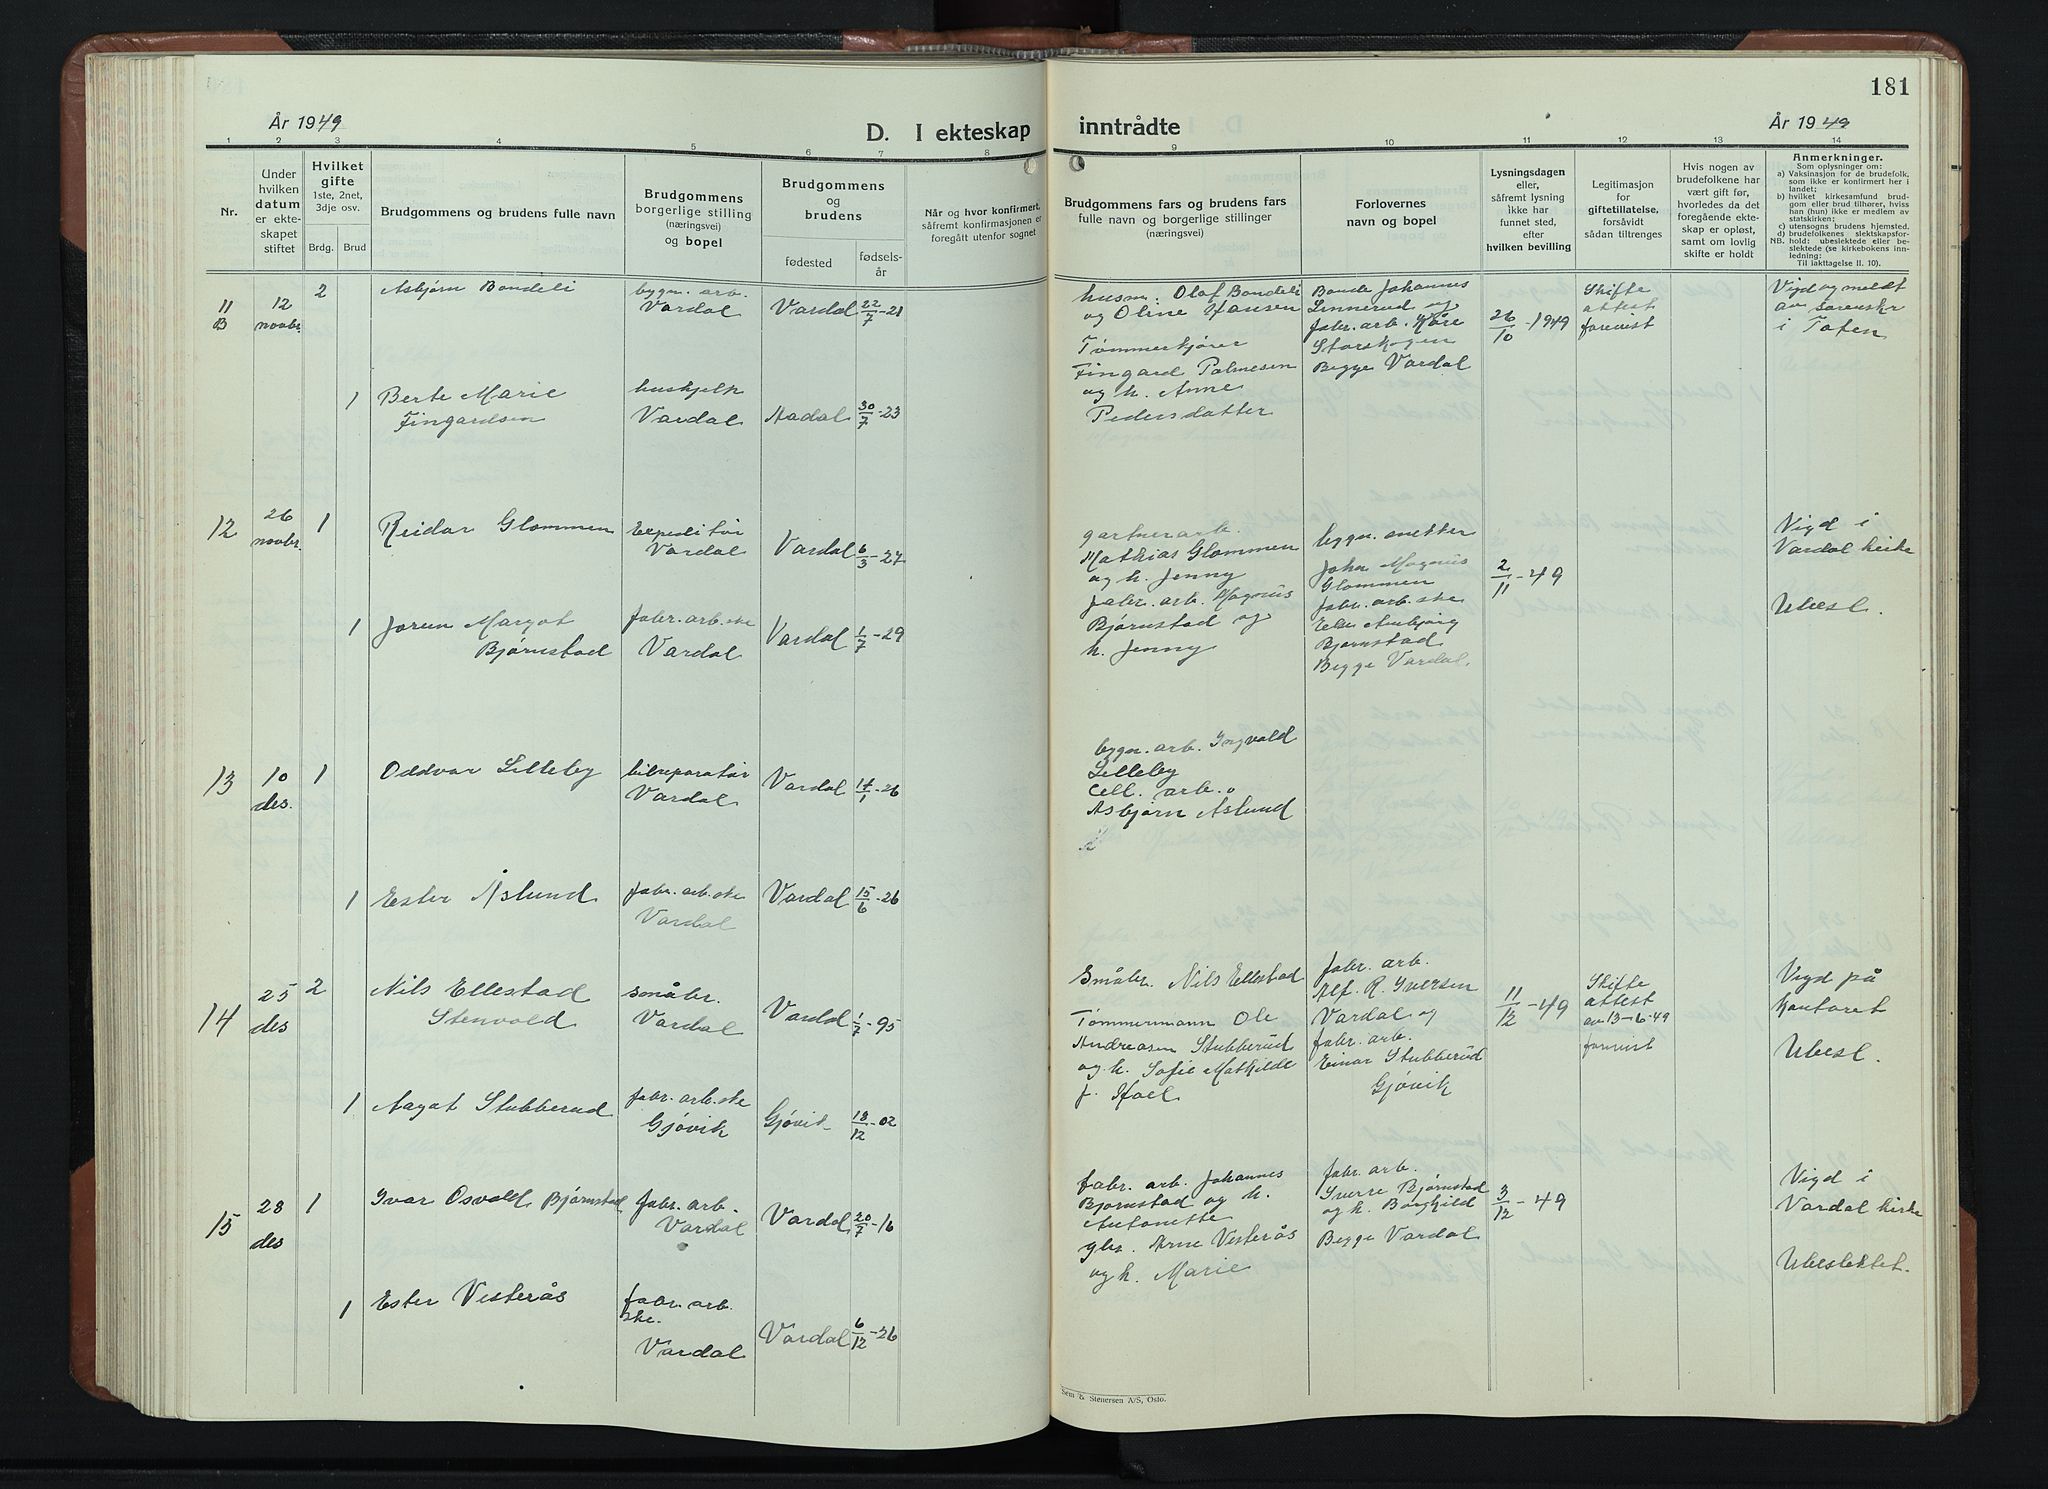 181
År 1949
D. I ekteskap
inntrådte
År 1949
1 2 3 4 5 6 7 8
9 10 11 12 13 14
Nr.
Under
hvilken
datum
er ekte-
skapet
stiftet
Hvilket
gifte
1ste, 2net,
3dje osv.
Brdg. Brud
Brudgommens og brudens fulle navn
Brudgommens
borgerlige stilling
(næringsvei)
og bopel
Brudgommens
og
brudens
fødested
fødsels-
år
Når og hvor konfirmert,
såfremt konfirmasjonen er
foregått utenfor sognet
Brudgommens fars og brudens fars
fulle navn og borgerlige stillinger
(næringsvei)
Forlovernes
navn og bopel
Lysningsdagen
eller,
såfremt lysning
ikke har
funnet sted,
efter
hvilken bevilling
Legitimasjon
for
giftetillatelse,
forsåvidt
sådan tiltrenges
Hvis nogen av
brudefolkene har
vært gift før,
hvorledes da det
foregående ekte-
skap er opløst,
samt om lovlig
skifte er holdt
Anmerkninger.
Som oplysninger om:
a) Vaksinasjon for de brudefolk,
som ikke er konfirmert her i
landet;
b) hvilket kirkesamfund brud-
gom eller brud tilhører, hviss
han (hun) ikke er medlem av
statskirken;
c) utensogns brudens hjemsted.
d) brudefolkenes slektskapsfor-
NB. hold: ubeslektede eller be-
slektede (se kirkebokens inn-
ledning:
Til iakttagelse II. 10).
11 B
12 novbr.
2
Asbjørn Bondeli
bygn. arb.
Vardal
Vardal 22/7-21
husm. Olaf Bondeli
og Oline Hansen
Tømmerkjører
Fingard Palmesen
og h. Anne
Pedersdatter
Bonde Johannes
Linnerud og
fabr. arb. Kåre
Storskogen
Begge Vardal
26/10-1949
Skifte
attest
forevist
Vigd og meldt
av sorenskr
i Toten
1 Berte Marie
Fingardsen
hushjelp
Vardal
Aadal 30/7-23
12
26 novbr.
1
Reidar Glommen
Ekspeditør
Vardal
Vardal 6/3-27
gartnerarb.
Mathias Glommen
og h. Jenny
fabr. arb. Magnus
Bjørnstad og
h. Jenny
bygn. snekker
Johan Magnus
Glommen
fabr. arb. ske
Else Annbjørg
Bjørnstad
Begge Vardal.
2/11-49
Vigd i
Vardal kirke
Ubesl.
1 Jorun Margot
Bjørnstad
fabr. arb. ske
Vardal
Vardal 1/7-29
13
10 des.
1
Oddvar Lilleby
bilreparatør
Vardal
Vardal 14/1-26
bygn. arb. Ingvald
Lilleby
Cell. arb.
Asbjørn Aslund
1 Ester Åslund
fabr. arb. ske
Vardal
Vardal 15/6-26
14
25 des
2
Nils Ellestad
Stenvold
småbr.
Vardal
Vardal 1/7-95
Småbr. Nils Ellestad
Tømmermann Ole
Andreasen Stubberud
og h. Sofie Mathilde
f. Hoel
fabr. arb.
Alf. R. Iversen
Vardal og
fabr. arb.
Einar Stubberud
Gjøvik
11/12-49
Skifte
attest
av 13-6-49
forevist
Vigd på
Kontoret
Ubesl.
1 Aagot Stubberud
fabr. arb. ske
Gjøvik
Gjøvik 18/12-02
15
28 des
1
Ivar Osvold Bjørnstad
fabr. arb.
Vardal
Vardal 20/7-16
fabr. arb. Johannes
Bjørnstad og h.
Antonette
gbr. Arne Vesterås
og h. Marie
fabr. arb.
Sverre Bjørnstad
og h. Borghild
Begge Vardal
3/12-49
Vigd i
Vardal kirke
Ubeslektet.
1 Ester Vesterås
fabr. arb.
ske.
Vardal
Vardal 6/12-26
Sem & Stenersen A/S, Oslo.